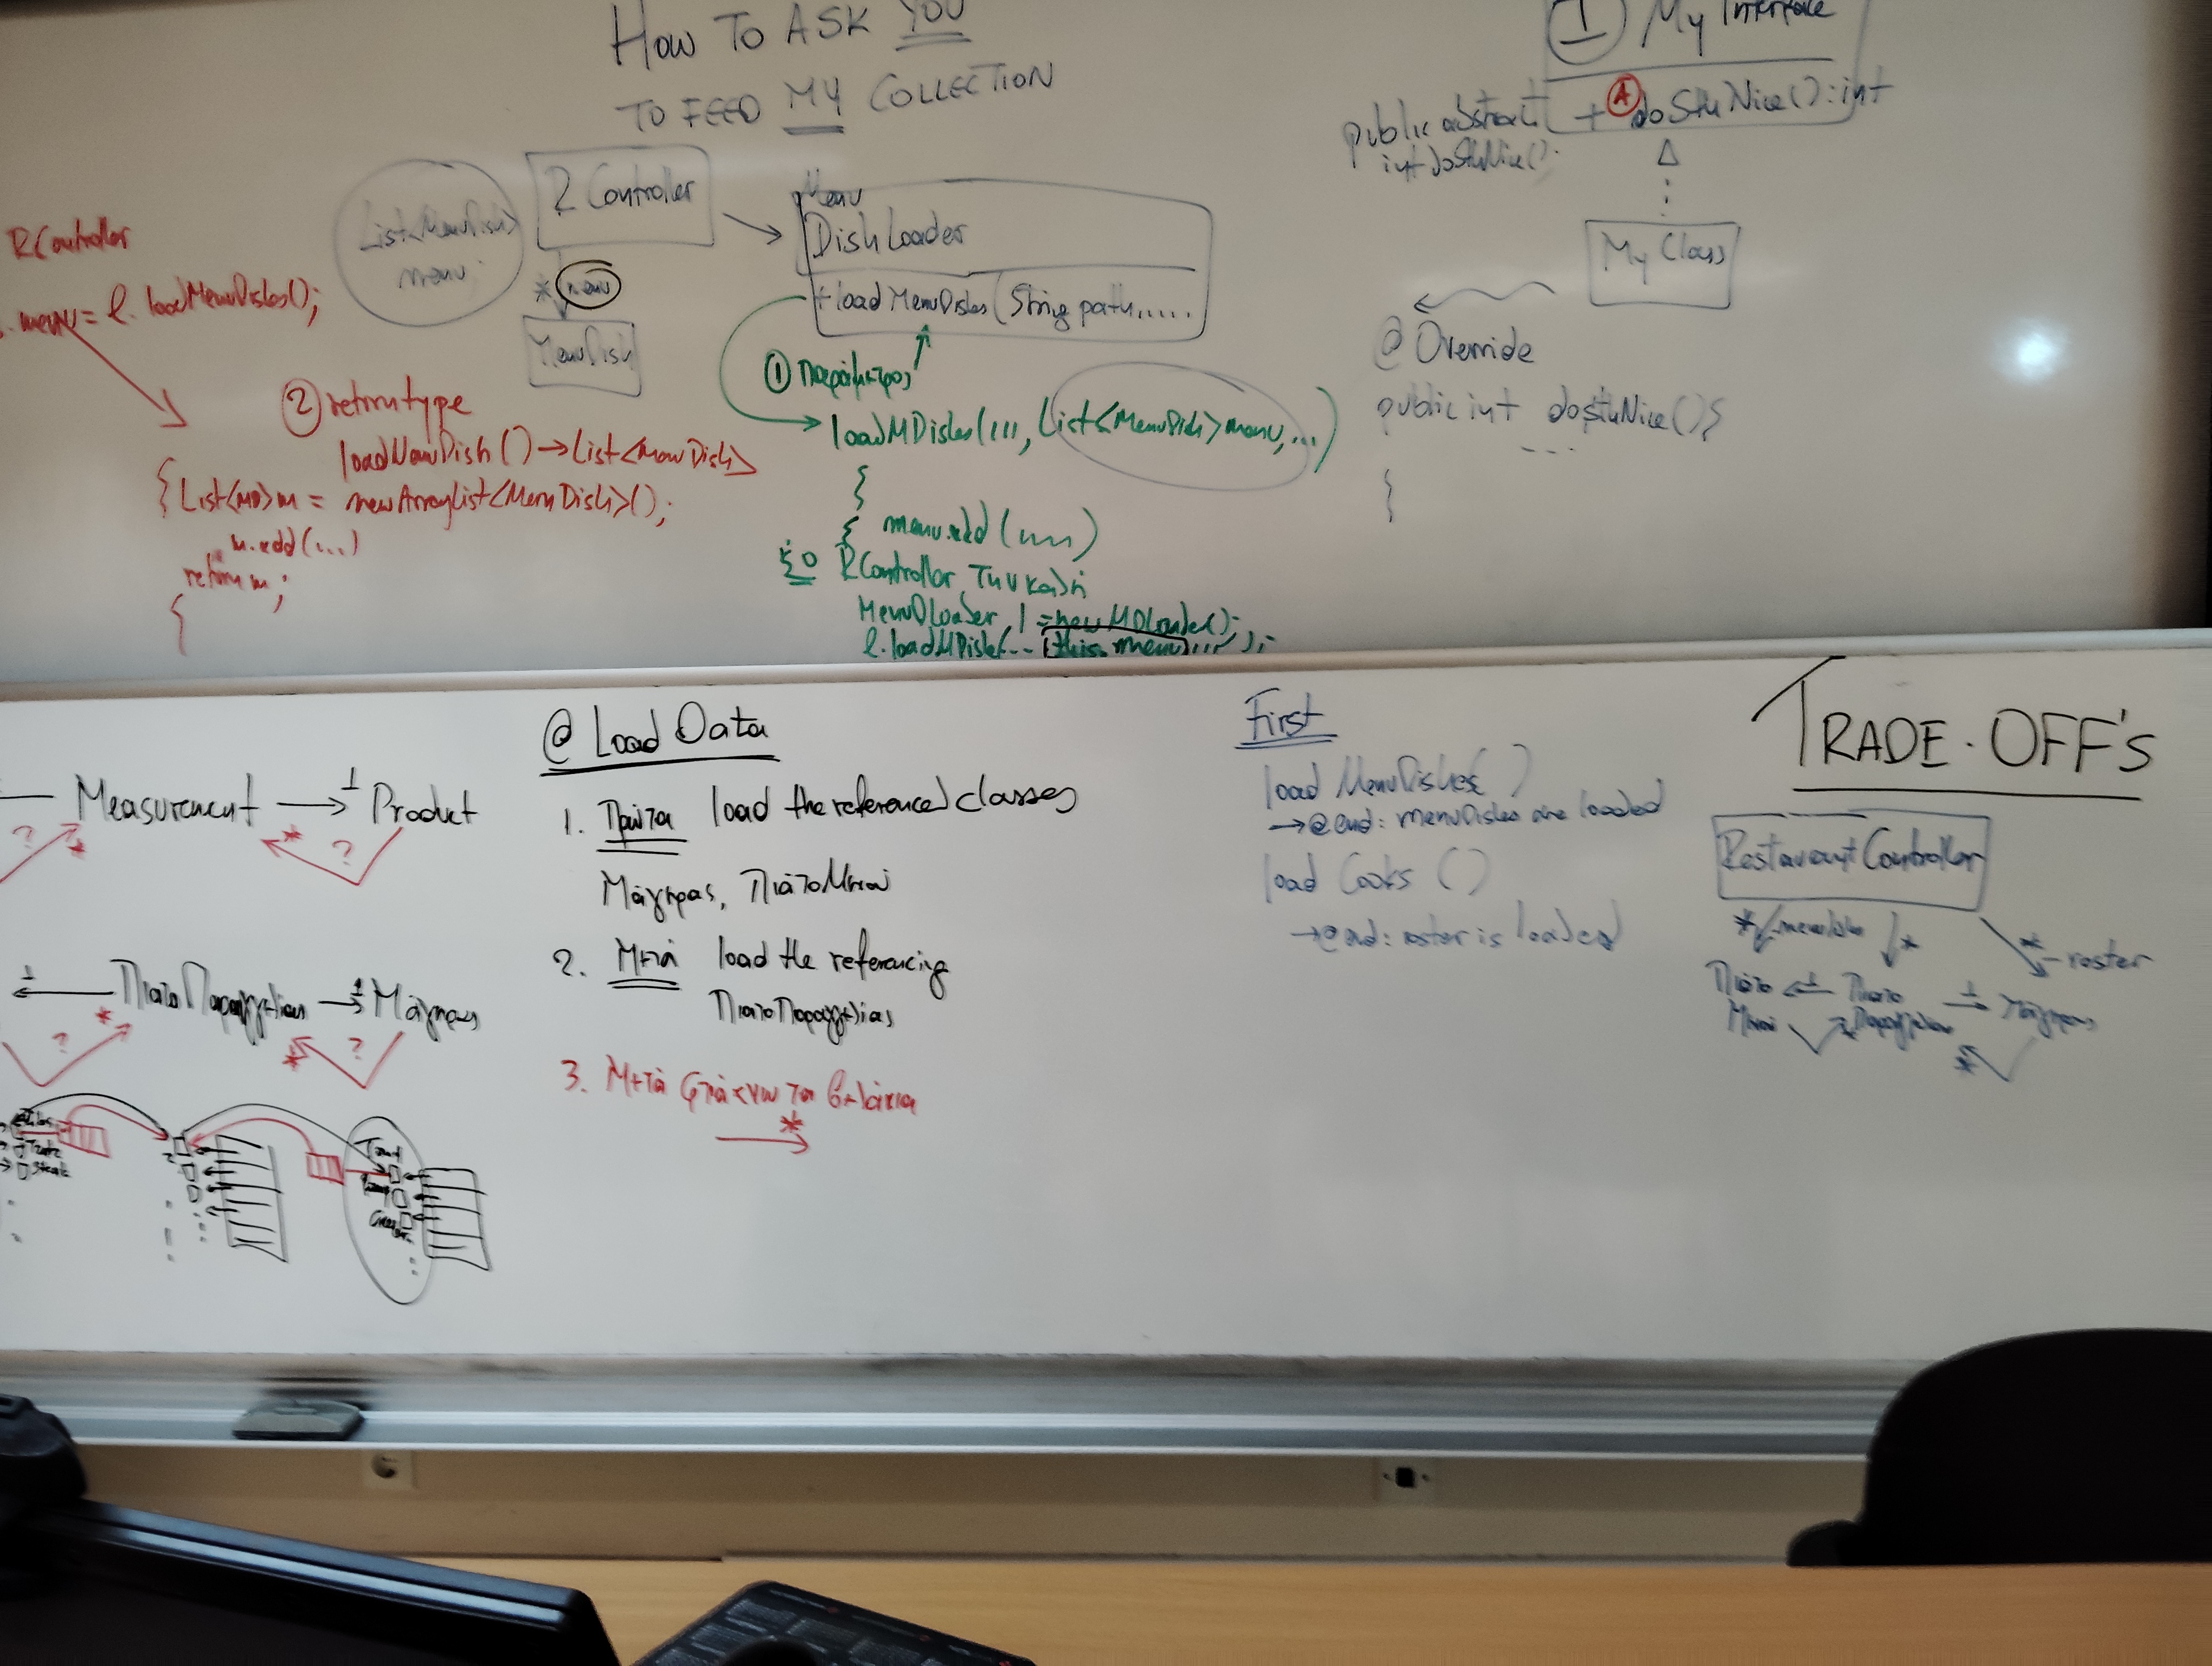 HOW TO ASK YOU
TO FEED MY COLLECTION
R Controller
List<MenuDish>
menu
* menu
MenuDish
Menu
DishLoader
+ loadMenuDishes(String path,.....
RController
menu = l. loadMenuDishes();
② return type
loadMenuDish () → List<MenuDish>
{ List<MD> m = new ArrayList<MenuDish>();
m.add(...)
return m;
① Παράμετρος
loadMDishes(,,,, List<MenuDish> menu,...)
{
menu.add (
RController την καλεί
MenuDLoader l = new MDLoader();
l.loadMDishes(... this.menu,,,,);
I My Interface
+ A doStuNice():int
public abstract
int doStuNice();
My Class
@ Override
public int doStuNice(){
...
Measurement → 1 Product
? * * ?
1 ΠιάτοΠαραγγελίας → 1 Μάγειρας
? * * ?
Steak
@ Load Data
1. Πρώτα load the referenced classes
Μάγειρας, ΠιάτοΜενού
2. Μετά load the referencing
ΠιάτοΠαραγγελίας
3. Μετά φτιάχνω τα βελάκια
*
First
load MenuDishes( )
→@end: menuDishes are loaded
load Cooks ()
→@end: roster is loaded
TRADE-OFF'S
Restaurant Controller
* * * - roster
Πιάτο 1 Πιάτο 1 Μάγειρας
Μενού * Παραγγελίας
*